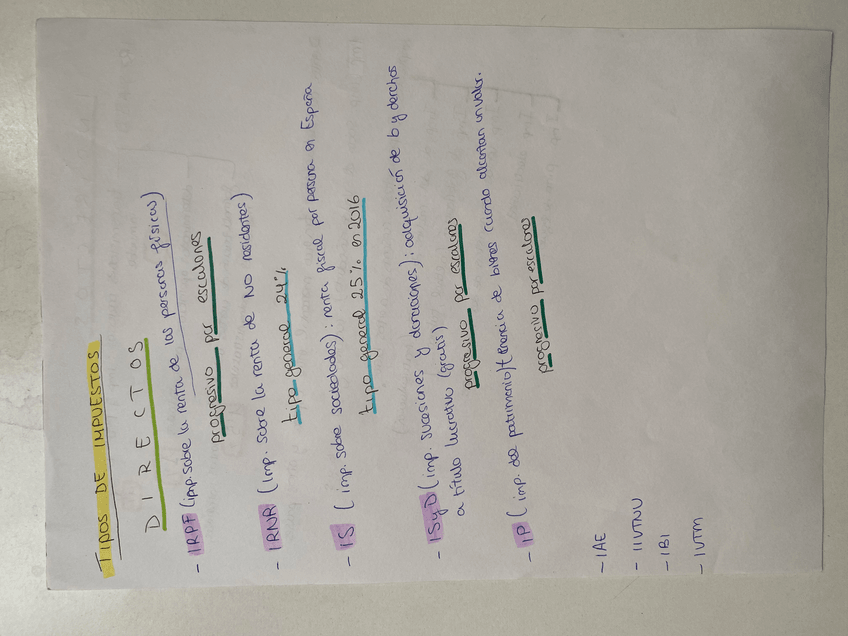 TIPOS DE IMPUESTOS
DIRECTOS
- IRPF (imp. sobre la renta de las personas físicas)
progresivo por escalones
- IRNR (Imp. sobre la renta de NO residentes)
tipo general 24%
- IS (imp. sobre sociedades): renta fiscal por persona en España
tipo general 25% en 2016
- ISyD (imp. sucesiones y donaciones): adquisición de b y derechos
a título lucrativo (gratis)
progresivo por escalones
- IP (imp. del patrimonio) de bienes cuando alcantan un valor.
progresivo por escalones
- IAE
- IIVTNU
- IBI
- IVTM